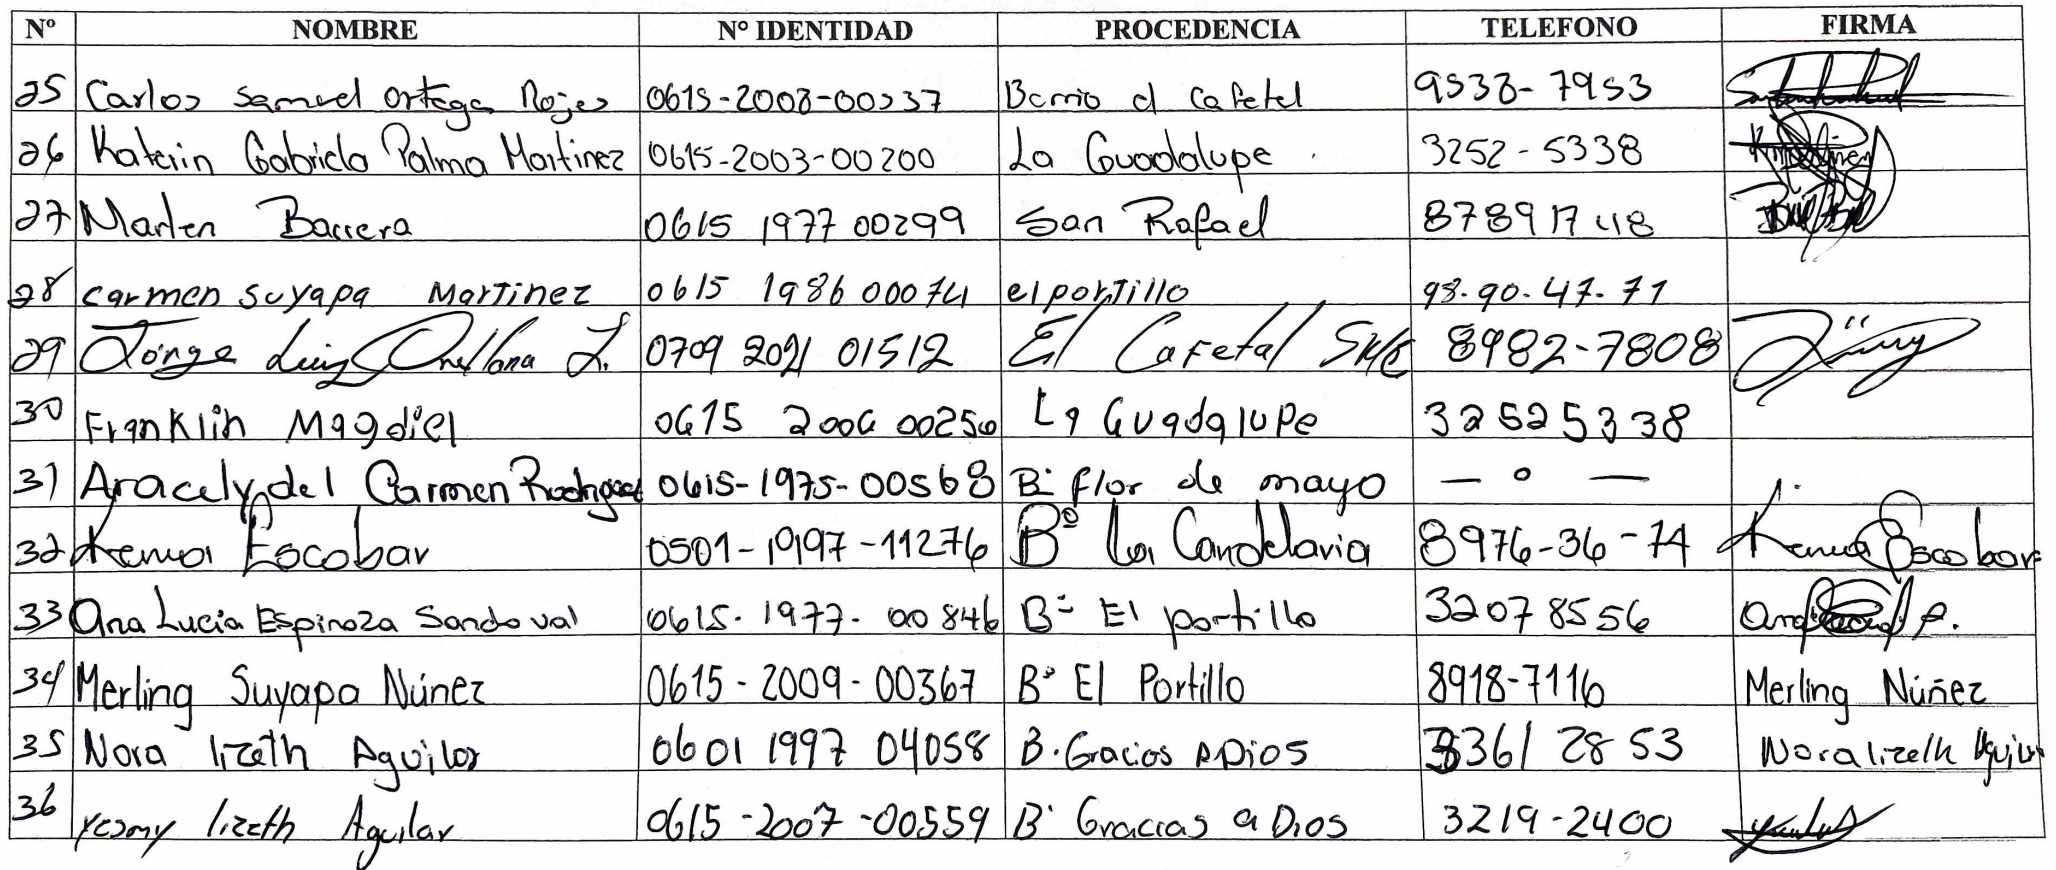 Nº NOMBRE Nº IDENTIDAD PROCEDENCIA TELEFONO FIRMA
25 Carlos Samuel Ortega Rojas 0615-2008-00337 Barrio el Cafetal 9538-7953
26 Katerin Gabriela Palma Martinez 0615-2003-00200 La Guadalupe 3252-5338
27 Marlen Barrera 0615 1977 00299 San Rafael 87891748
28 carmen suyapa Martinez 0615 1986 00074 el portillo 98.90.47.71
29 Jorge Luis Orellana L. 0709 2021 01512 El Cafetal 8982-7808
30 Franklin Magdiel 0615 2006 00256 La Guadalupe 32525338
31 Aracely del Carmen Rodriguez 0615-1975-00568 Bº flor de mayo — º —
32 Kenia Escobar 0501-1997-11276 Bº La Candelaria 8976-36-74 Kenia Escobar
33 Ana Lucia Espinoza Sandoval 0615-1977-00846 Bº El portillo 32078556
34 Merling Suyapa Núnez 0615-2009-00367 Bº El Portillo 8918-7116 Merling Núñez
35 Nora lizeth Aguilar 0601 1997 04058 B. Gracias a Dios 3361 28 53 Nora lizeth Aguilar
36 yesmy lizeth Aguilar 0615-2007-00559 Bº Gracias a Dios 3219-2400